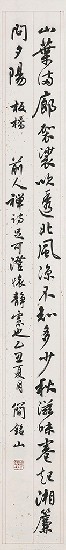 山葉滿廊袈裟吹透北風凉不知多少秋滋味卷起湘簾
問夕陽 板橋 前人禪詩足可澄懷靜慮也乙丑夏月 簡銘山